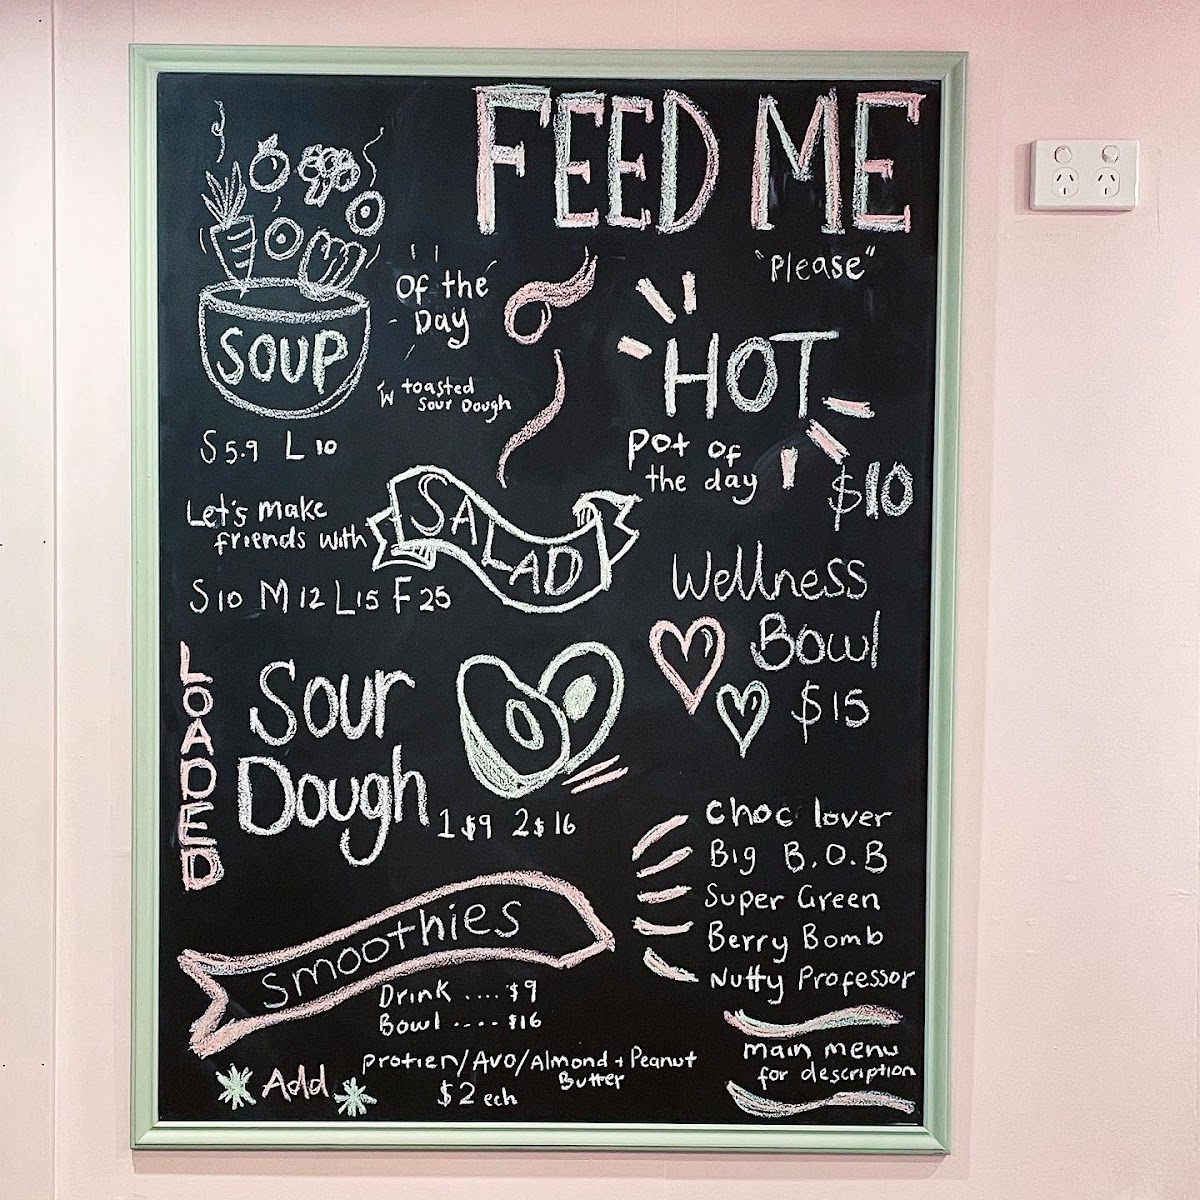 FEED ME
"Please"
SOUP
Of the
Day
w toasted
Sour Dough
S 5.9 L 10
HOT
Pot of
the day
$10
Let's make
friends with
SALAD
S 10 M 12 L 15 F 25
Wellness
Bowl
$15
LOADED
Sour
Dough
1 $9 2 $ 16
Smoothies
Drink .... $9
Bowl .... $16
Choc lover
Big B.O.B
Super Green
Berry Bomb
Nutty Professor
main menu
for description
Add
protien/Avo/Almond + Peanut
Butter
$2 ech